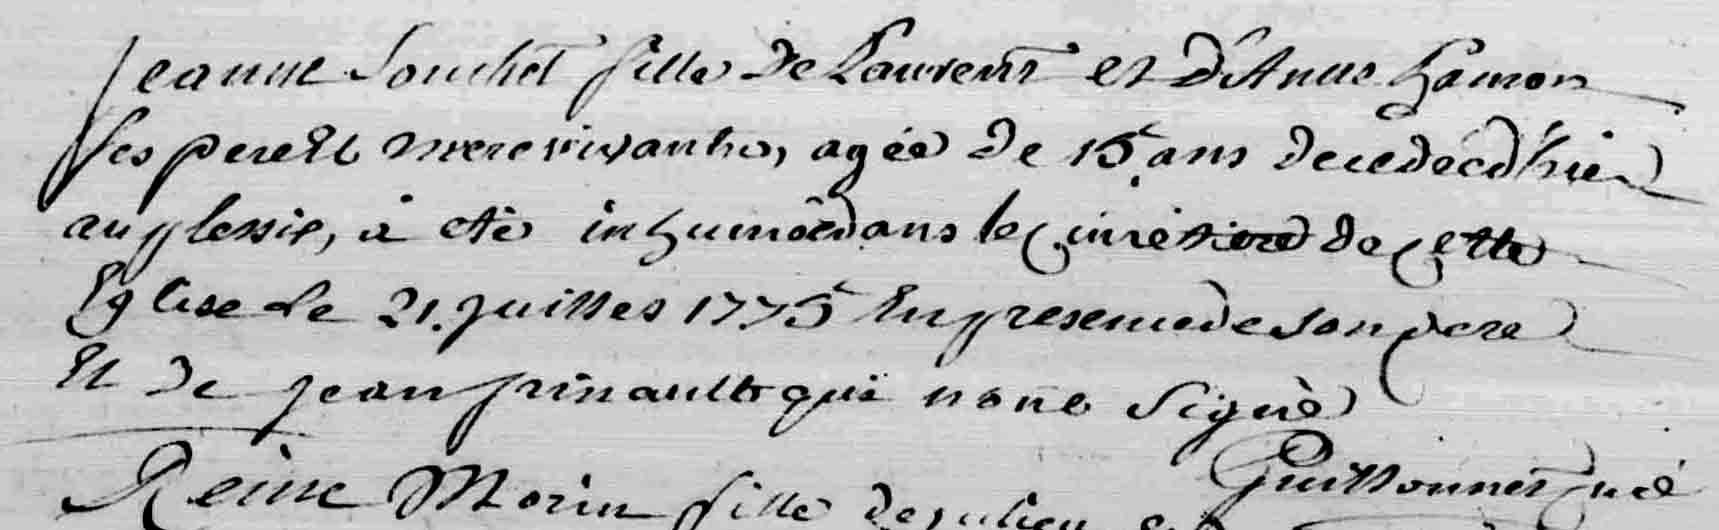 Jeanne Souchet fille de Laurent et d'Anne hamon
ses pere Et mere vivants, agée de 15 ans decedée d'hier
au plessis, a eté inhumée dans le cimetiere de cette
Eglise le 21. juillet 1775 En presence de son pere
Et de jean prinault qui n'ont signé
Guillonnet curé
Reine Morin fille de julien et